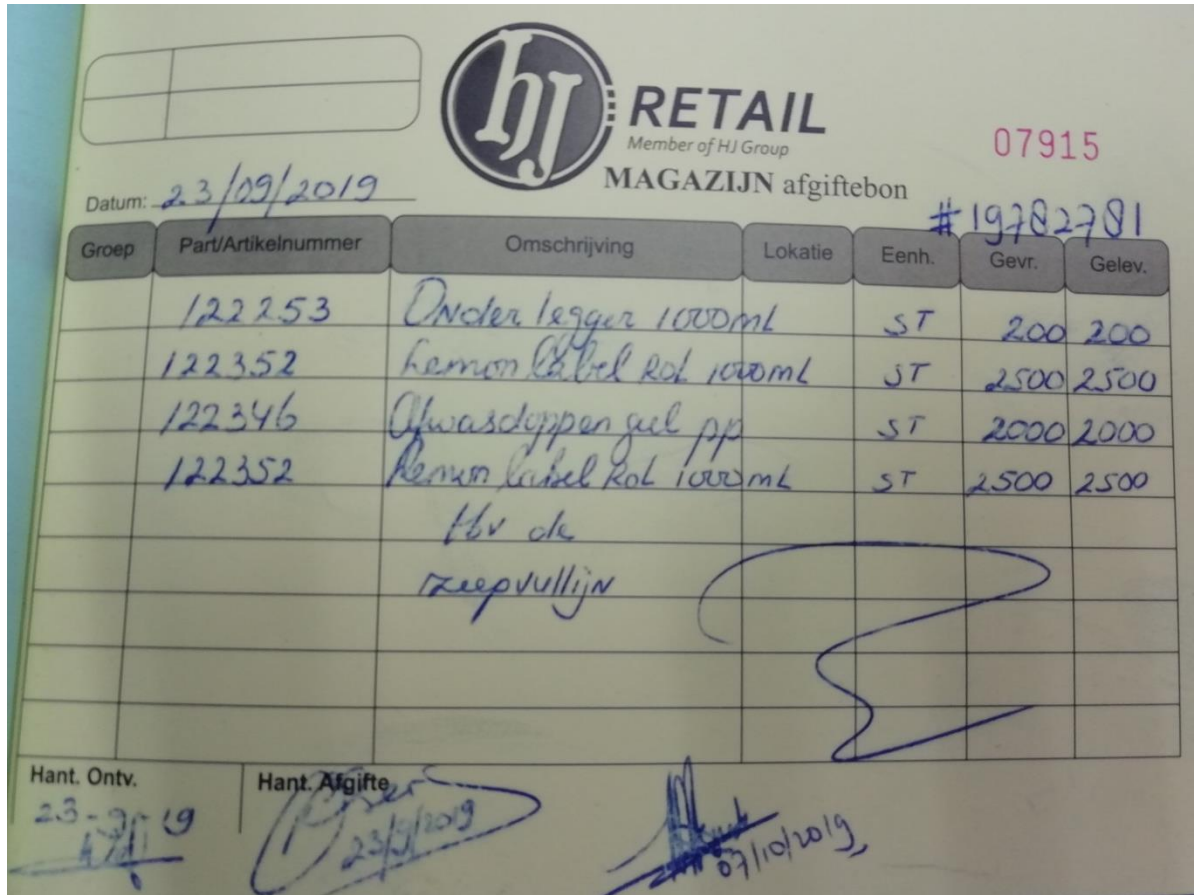 hJ RETAIL
Member of HJ Group
07915
MAGAZIJN afgiftebon
Datum: 23/09/2019
#19782781
Groep Part/Artikelnummer Omschrijving Lokatie Eenh. Gevr. Gelev.
122253 Onderlegger 1000mL ST 200 200
122352 Lemon label Rol 1000mL ST 2500 2500
122346 Afwasdoppen geel pp ST 2000 2000
122352 Lemon label Rol 1000mL ST 2500 2500
tbv de
zeepvullijn
Hant. Ontv. Hant. Afgifte
23-9-19
23/9/2019
07/10/2019